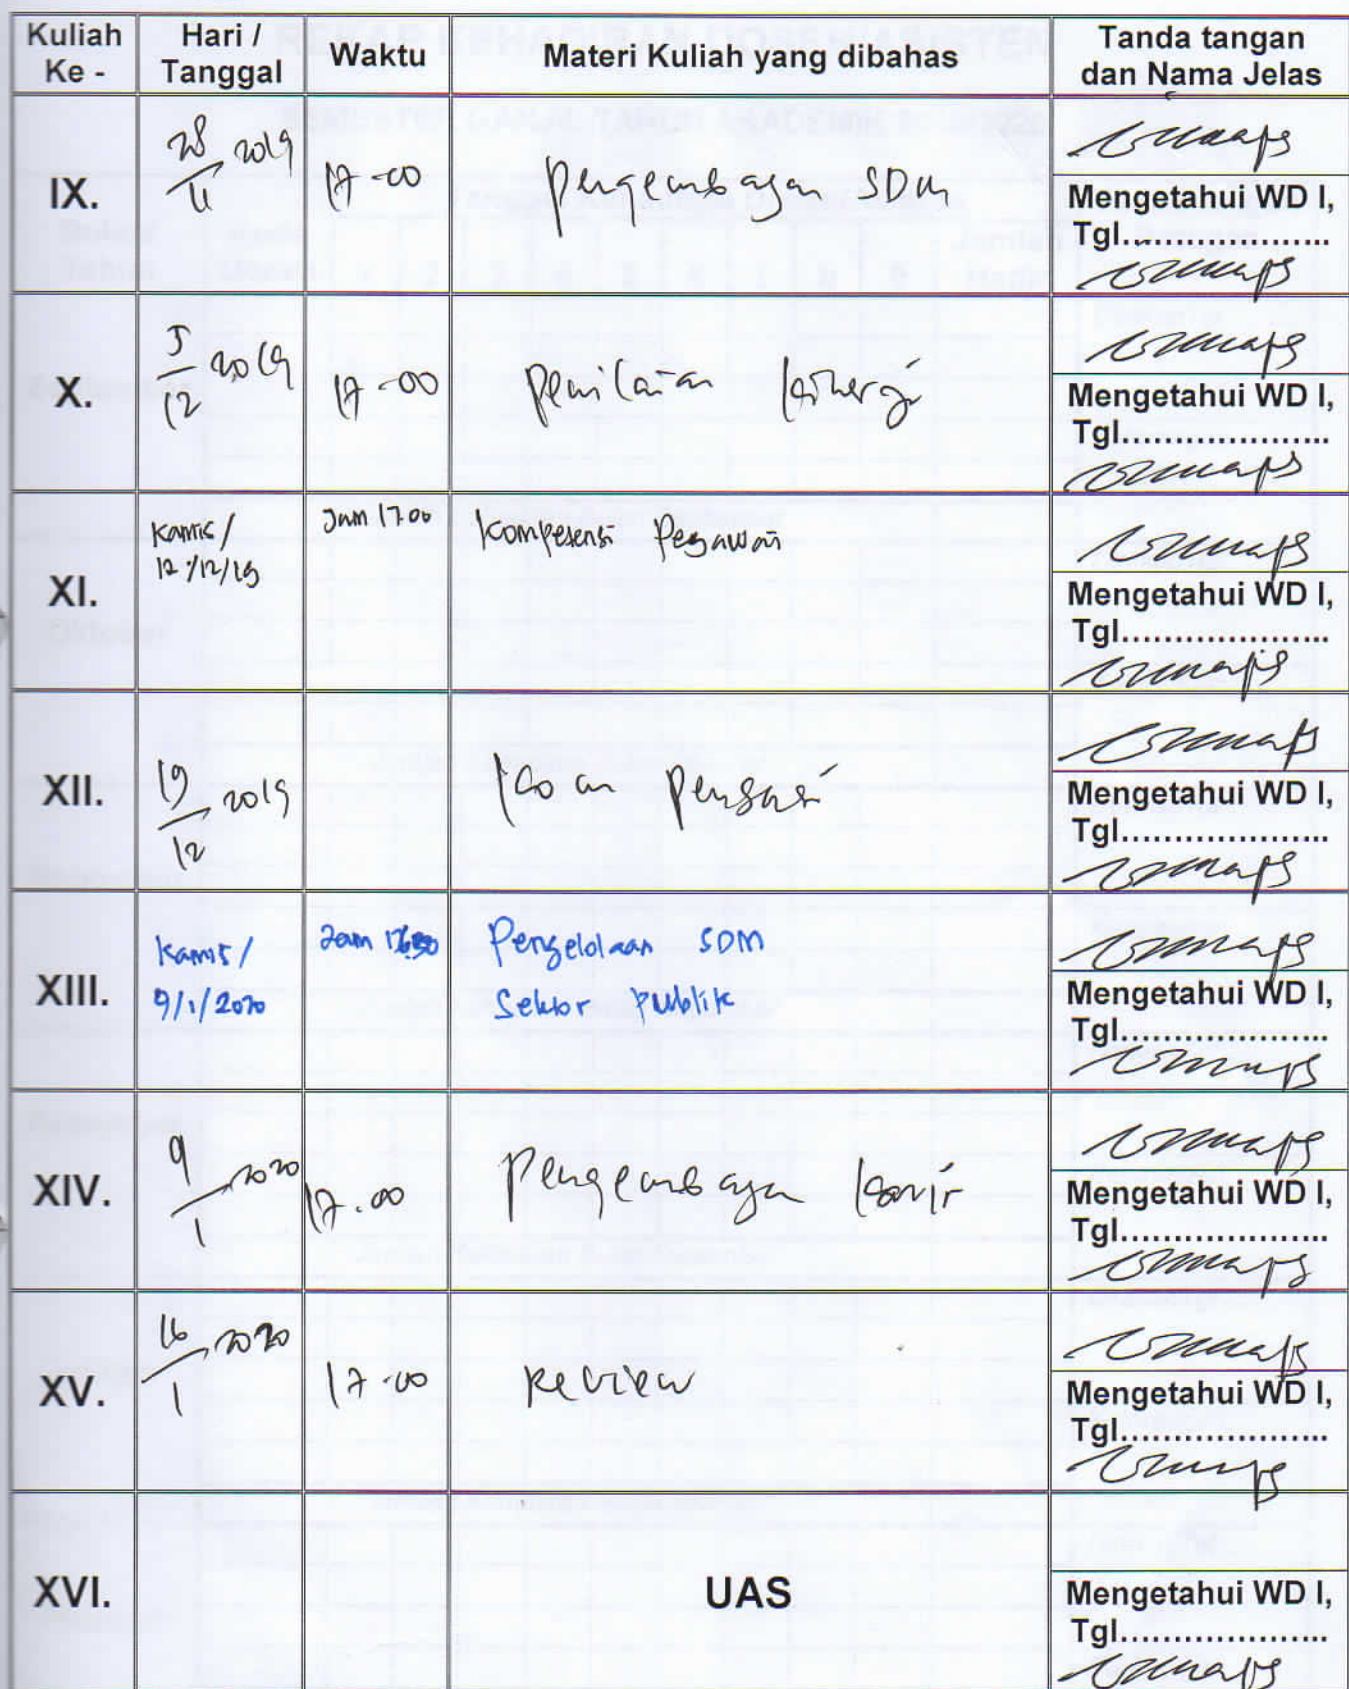 Kuliah Ke - Hari / Tanggal Waktu Materi Kuliah yang dibahas Tanda tangan dan Nama Jelas
IX. 28/11 2019 17-00 Pengembagan SDM
Mengetahui WD I,
Tgl...................
X. 5/12 2019 17-00 Penilaian kinerja
Mengetahui WD I,
Tgl...................
XI. Kamis / 12/12/19 Jam 17.00 Kompetensi Pegawai
Mengetahui WD I,
Tgl...................
XII. 19/12 2019
Mengetahui WD I,
Tgl...................
XIII. Kamis / 9/1/2020 Jam Pengelolaan SDM
Sektor Publik
Mengetahui WD I,
Tgl...................
XIV. 9/1 2020 17.00 Pengembagan karir
Mengetahui WD I,
Tgl...................
XV. 16/1 2020 17-00 Review
Mengetahui WD I,
Tgl...................
XVI. UAS
Mengetahui WD I,
Tgl...................